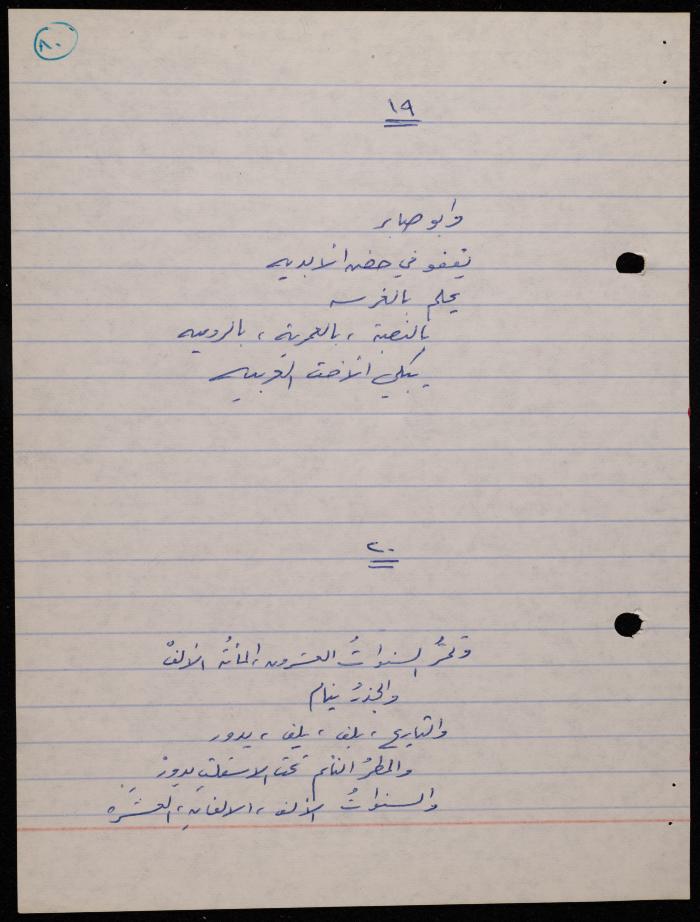 ٨٠
١٩
وابو صابر
يغفو في حضن الابديه
يحلم بالغرسه
بالنصبة ، بالعمرية ، بالروميه
يبكي الاخت العربيه
٢٠
وتمرُّ السنواتُ العشرون، المأتهُ الألفْ
والجذرُ ينام
والتاريخ ، يلف ، يلف ، يدور
والمطرُ النائم تحت الاسفلتِ يدورْ
والسنواتُ الألف ، الالفان ، العشره